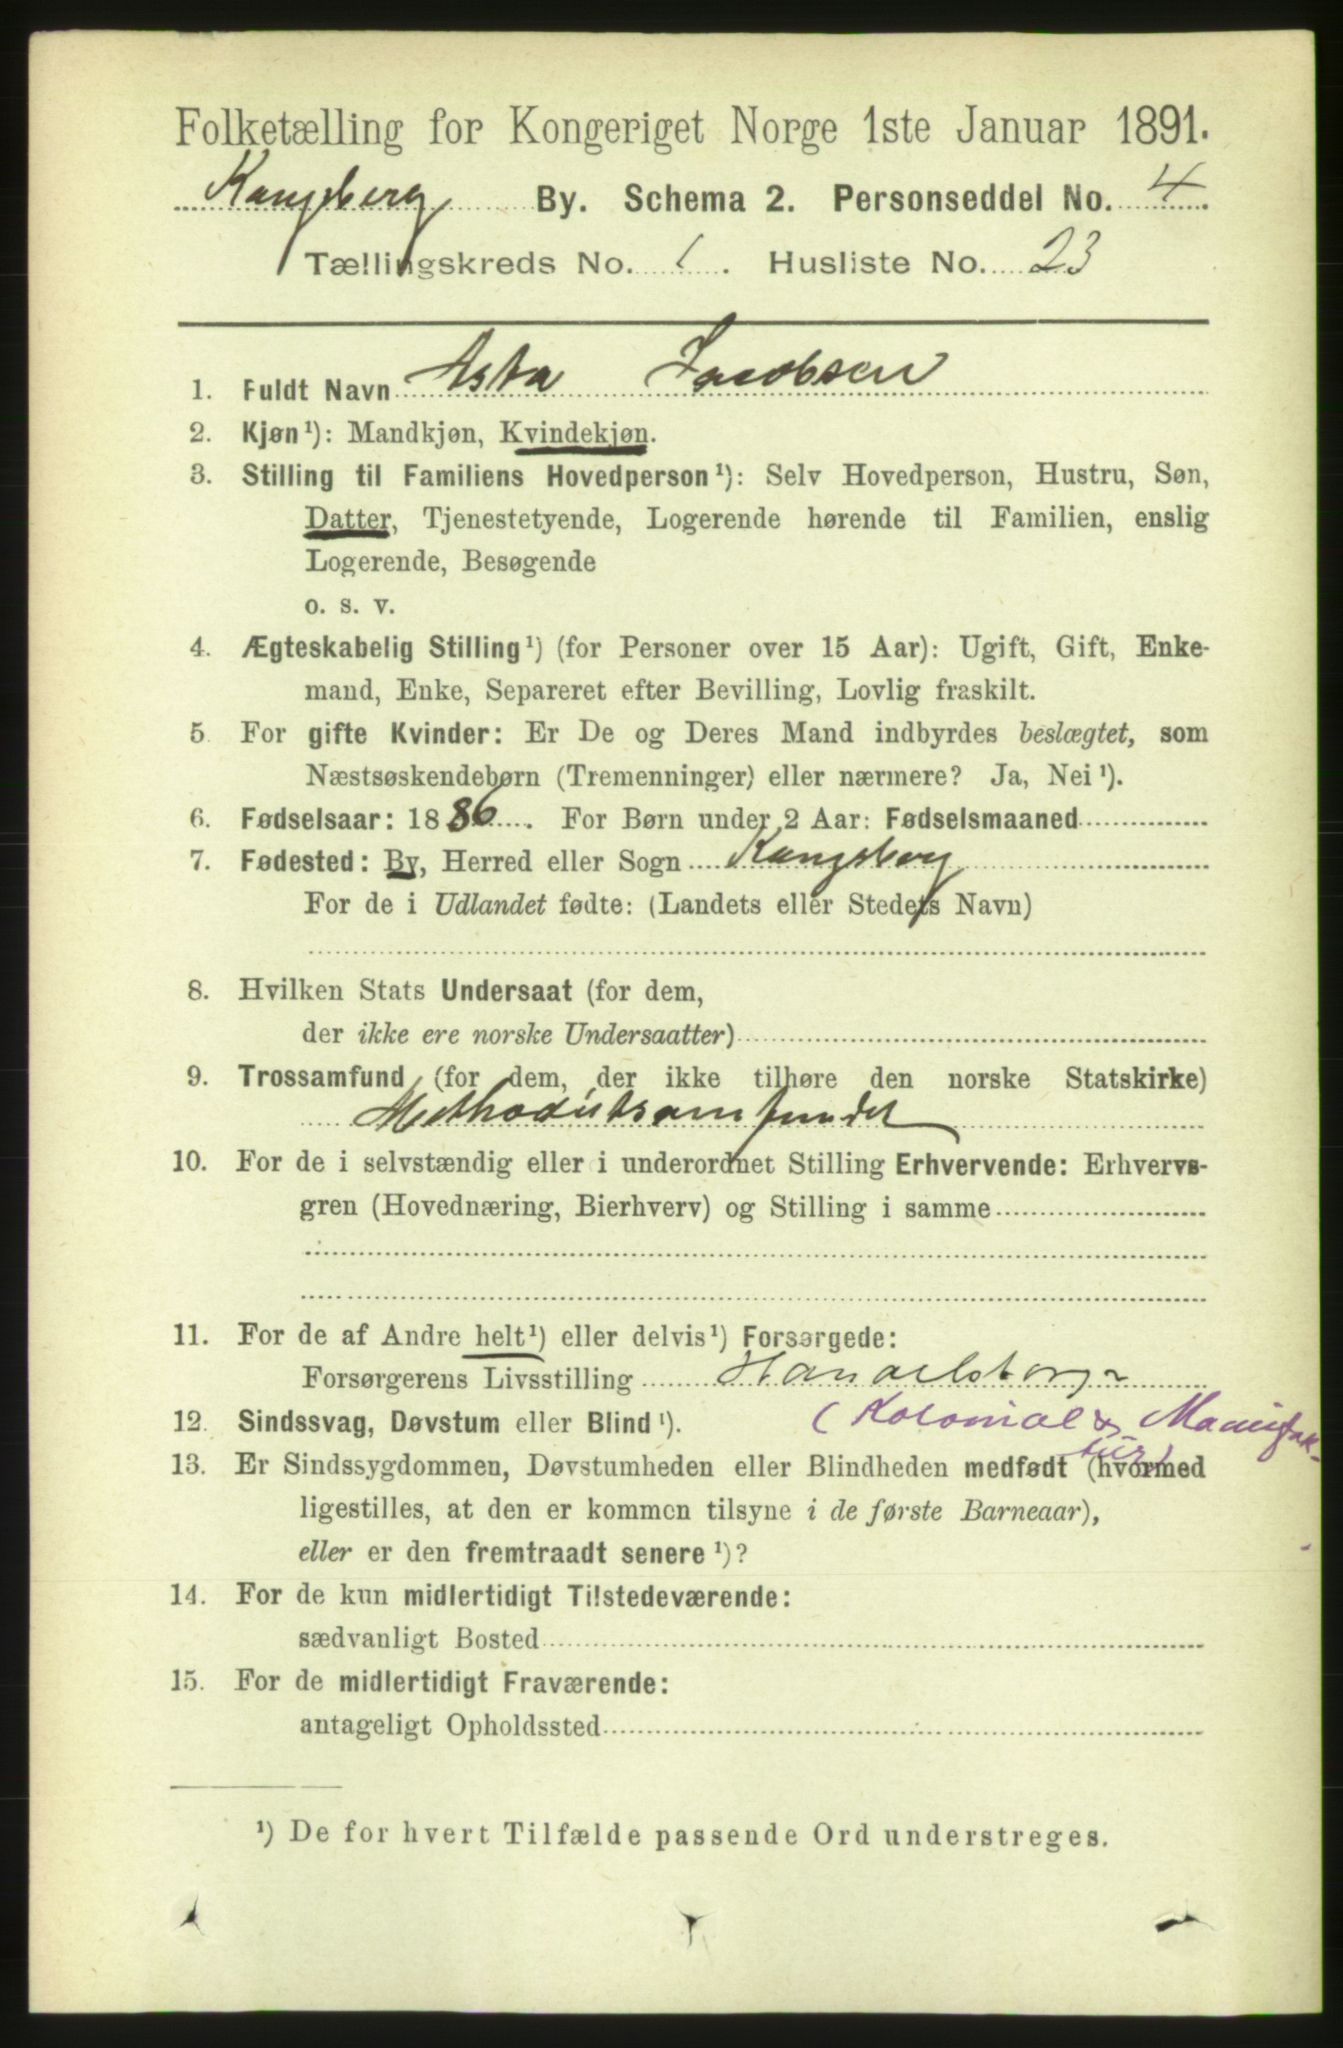 Folketælling for Kongeriget Norge 1ste Januar 1891.
Kongsberg By. Schema 2. Personseddel No. 4.
Tællingskreds No. 1. Husliste No. 23
1. Fuldt Navn Asta Jacobsen
2. Kjøn¹): Mandkjøn, Kvindekjøn.
3. Stilling til Familiens Hovedperson¹): Selv Hovedperson, Hustru, Søn,
Datter, Tjenestetyende, Logerende hørende til Familien, enslig
Logerende, Besøgende
o. s. v.
4. Ægteskabelig Stilling¹) (for Personer over 15 Aar): Ugift, Gift, Enke-
mand, Enke, Separeret efter Bevilling, Lovlig fraskilt.
5 For gifte Kvinder: Er De og Deres Mand indbyrdes beslægtet, som
Næstsøskendebørn (Tremenninger) eller nærmere? Ja, Nei¹).
6. Fødselsaar: 1886. For Børn under 2 Aar: Fødselsmaaned
7. Fødested: By, Herred eller Sogn Kongsberg
For de i Udlandet fødte: (Landets eller Stedets Navn)
8. Hvilken Stats Undersaat (for dem,
der ikke ere norske Undersaatter)
9. Trossamfund (for dem, der ikke tilhøre den norske Statskirke)
Methodistsamfundet
10. For de i selvstændig eller i underordnet Stilling Erhvervende: Erhvervs-
gren (Hovednæring, Bierhverv) og Stilling i samme
11. For de af Andre helt¹) eller delvis¹) Forsørgede:
Forsørgerens Livsstilling Handelsborger
12. Sindssvag, Døvstum eller Blind¹). (Kolonial & Manufak-
tur)
13. Er Sindssygdommen, Døvstumheden eller Blindheden medfødt (hvormed
ligestilles, at den er kommen tilsyne i de første Barneaar),
eller er den fremtraadt senere¹)?
14. For de kun midlertidigt Tilstedeværende:
sædvanligt Bosted
15. For de midlertidigt Fraværende:
antageligt Opholdssted
¹) De for hvert Tilfælde passende Ord understreges.